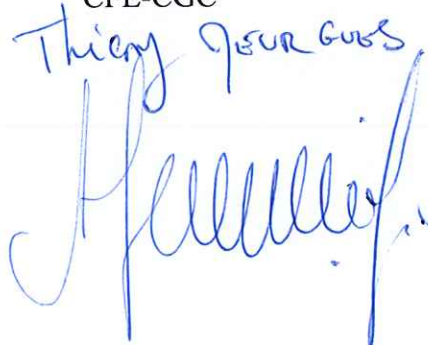 CFE-CGC
Thierry JEURGUES